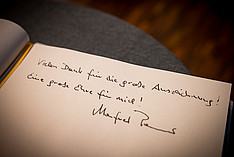 Vielen Dank für die große Auszeichnung!
Eine große Ehre für mich!
Manfred